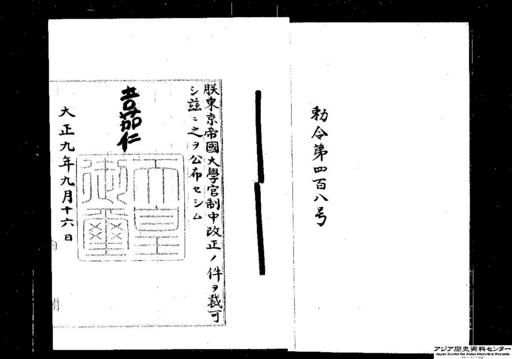 勅令第四百八号
朕東京帝國大學官制中改正ノ件ヲ裁可
シ茲ニ之ヲ公布セシム
嘉仁
天皇御璽
大正九年九月十六日
アジア歴史資料センター
Japan Center for Asian Historical Records